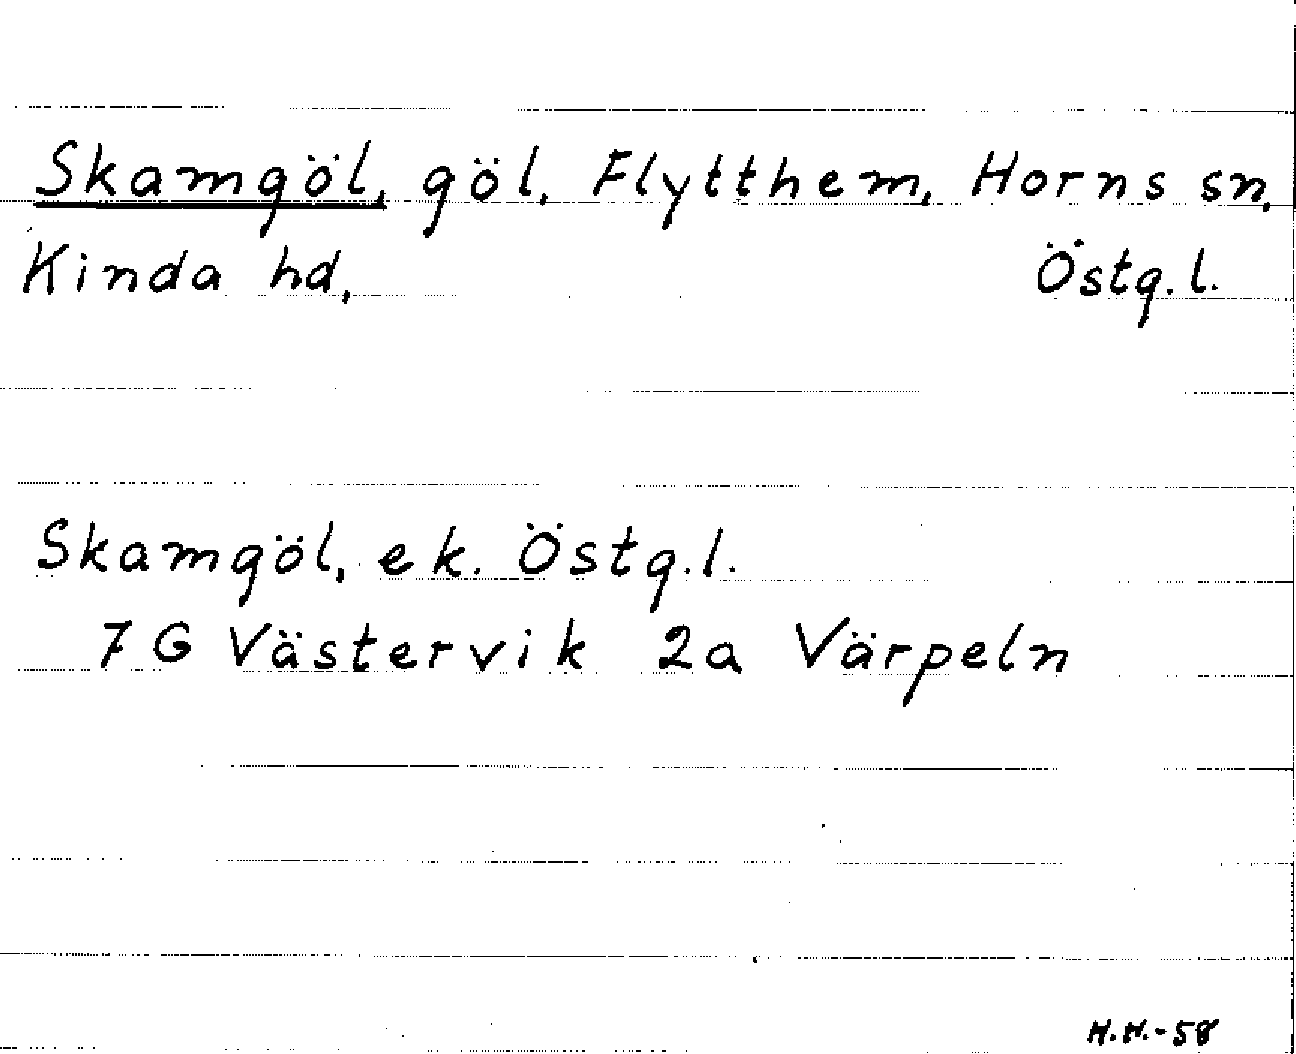 Skamgöl, göl, Flytthem, Horns sn,
Kinda hd, Östg.l.
Skamgöl, ek. Östg.l.
7 G Västervik 2a Värpeln
H.H.-58